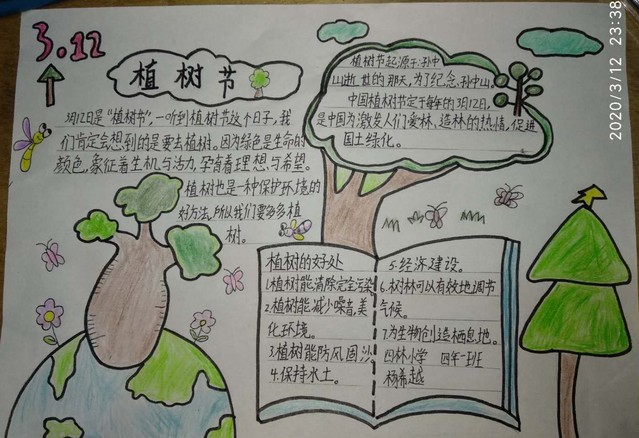 3.12
植树节
3月12日是“植树节”,一听到植树节这个日子,我
们肯定会想到的是要去植树。因为绿色是生命的
颜色,象征着生机与活力,孕育着理想与希望。
植树也是一种保护环境的
好方法,所以我们要多多植
树。
植树节起源于孙中
山逝世的那天,为了纪念孙中山,
中国植树节定于每年的3月12日,
是中国为激发人们爱林、造林的热情,促进
国土绿化。
植树的好处
1.植树能清除完全污染
2.植树能减少噪音,美
化环境。
3.植树能防风固沙
4.保持水土。
5.经济建设。
6.树林可以有效地调节
气候。
7.为生物创造栖息地。
四林小学 四年一班
杨希越
2020/3/12 23:38